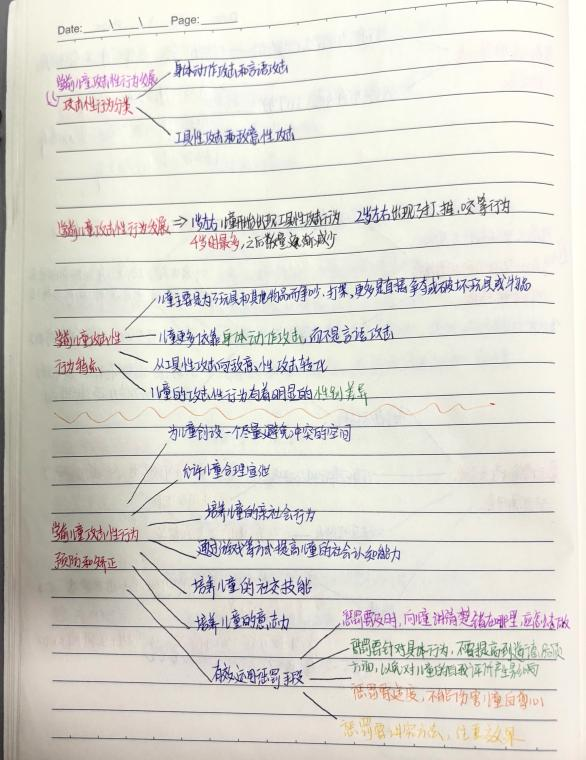 Date: \ \ \ Page:
学前儿童攻击性行为发展
攻击性行为分类
身体动作攻击和言语攻击
工具性攻击和敌意性攻击
学前儿童攻击性行为发展 ⇒ 1岁左右儿童开始出现工具性攻击行为 2岁左右出现了打、推、咬等行为
4岁时最多,之后数量逐渐减少
学前儿童攻击性
行为特点
儿童主要是为了玩具和其他物品而争吵、打架,更多是直接争夺或破坏玩具或物品
儿童更多依靠身体动作攻击,而不是言语攻击
从工具性攻击向敌意性攻击转化
儿童的攻击性行为有着明显的性别差异
学前儿童攻击性行为
预防和矫正
为儿童创设一个尽量避免冲突的空间
允许儿童合理宣泄
培养儿童的亲社会行为
通过游戏等方式提高儿童的社会认知能力
培养儿童的社交技能
培养儿童的意志力
有效运用惩罚手段
惩罚要及时,向儿童讲清楚错在哪里,应怎么做
惩罚要针对具体行为,不要提高到道德品质
方面,以免对儿童的自我评价产生影响
惩罚要适度,不能伤害儿童自尊心
惩罚要讲究方法,注重效果